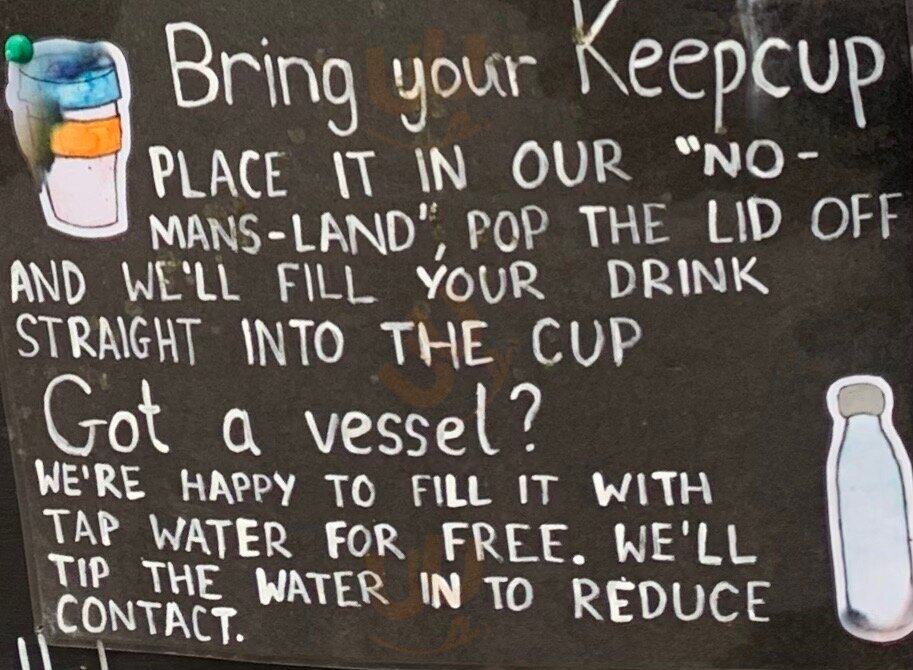 Bring your Keepcup
PLACE IT IN OUR "NO-
MANS-LAND", POP THE LID OFF
AND WE'LL FILL YOUR DRINK
STRAIGHT INTO THE CUP
Got a vessel?
WE'RE HAPPY TO FILL IT WITH
TAP WATER FOR FREE. WE'LL
TIP THE WATER IN TO REDUCE
CONTACT.